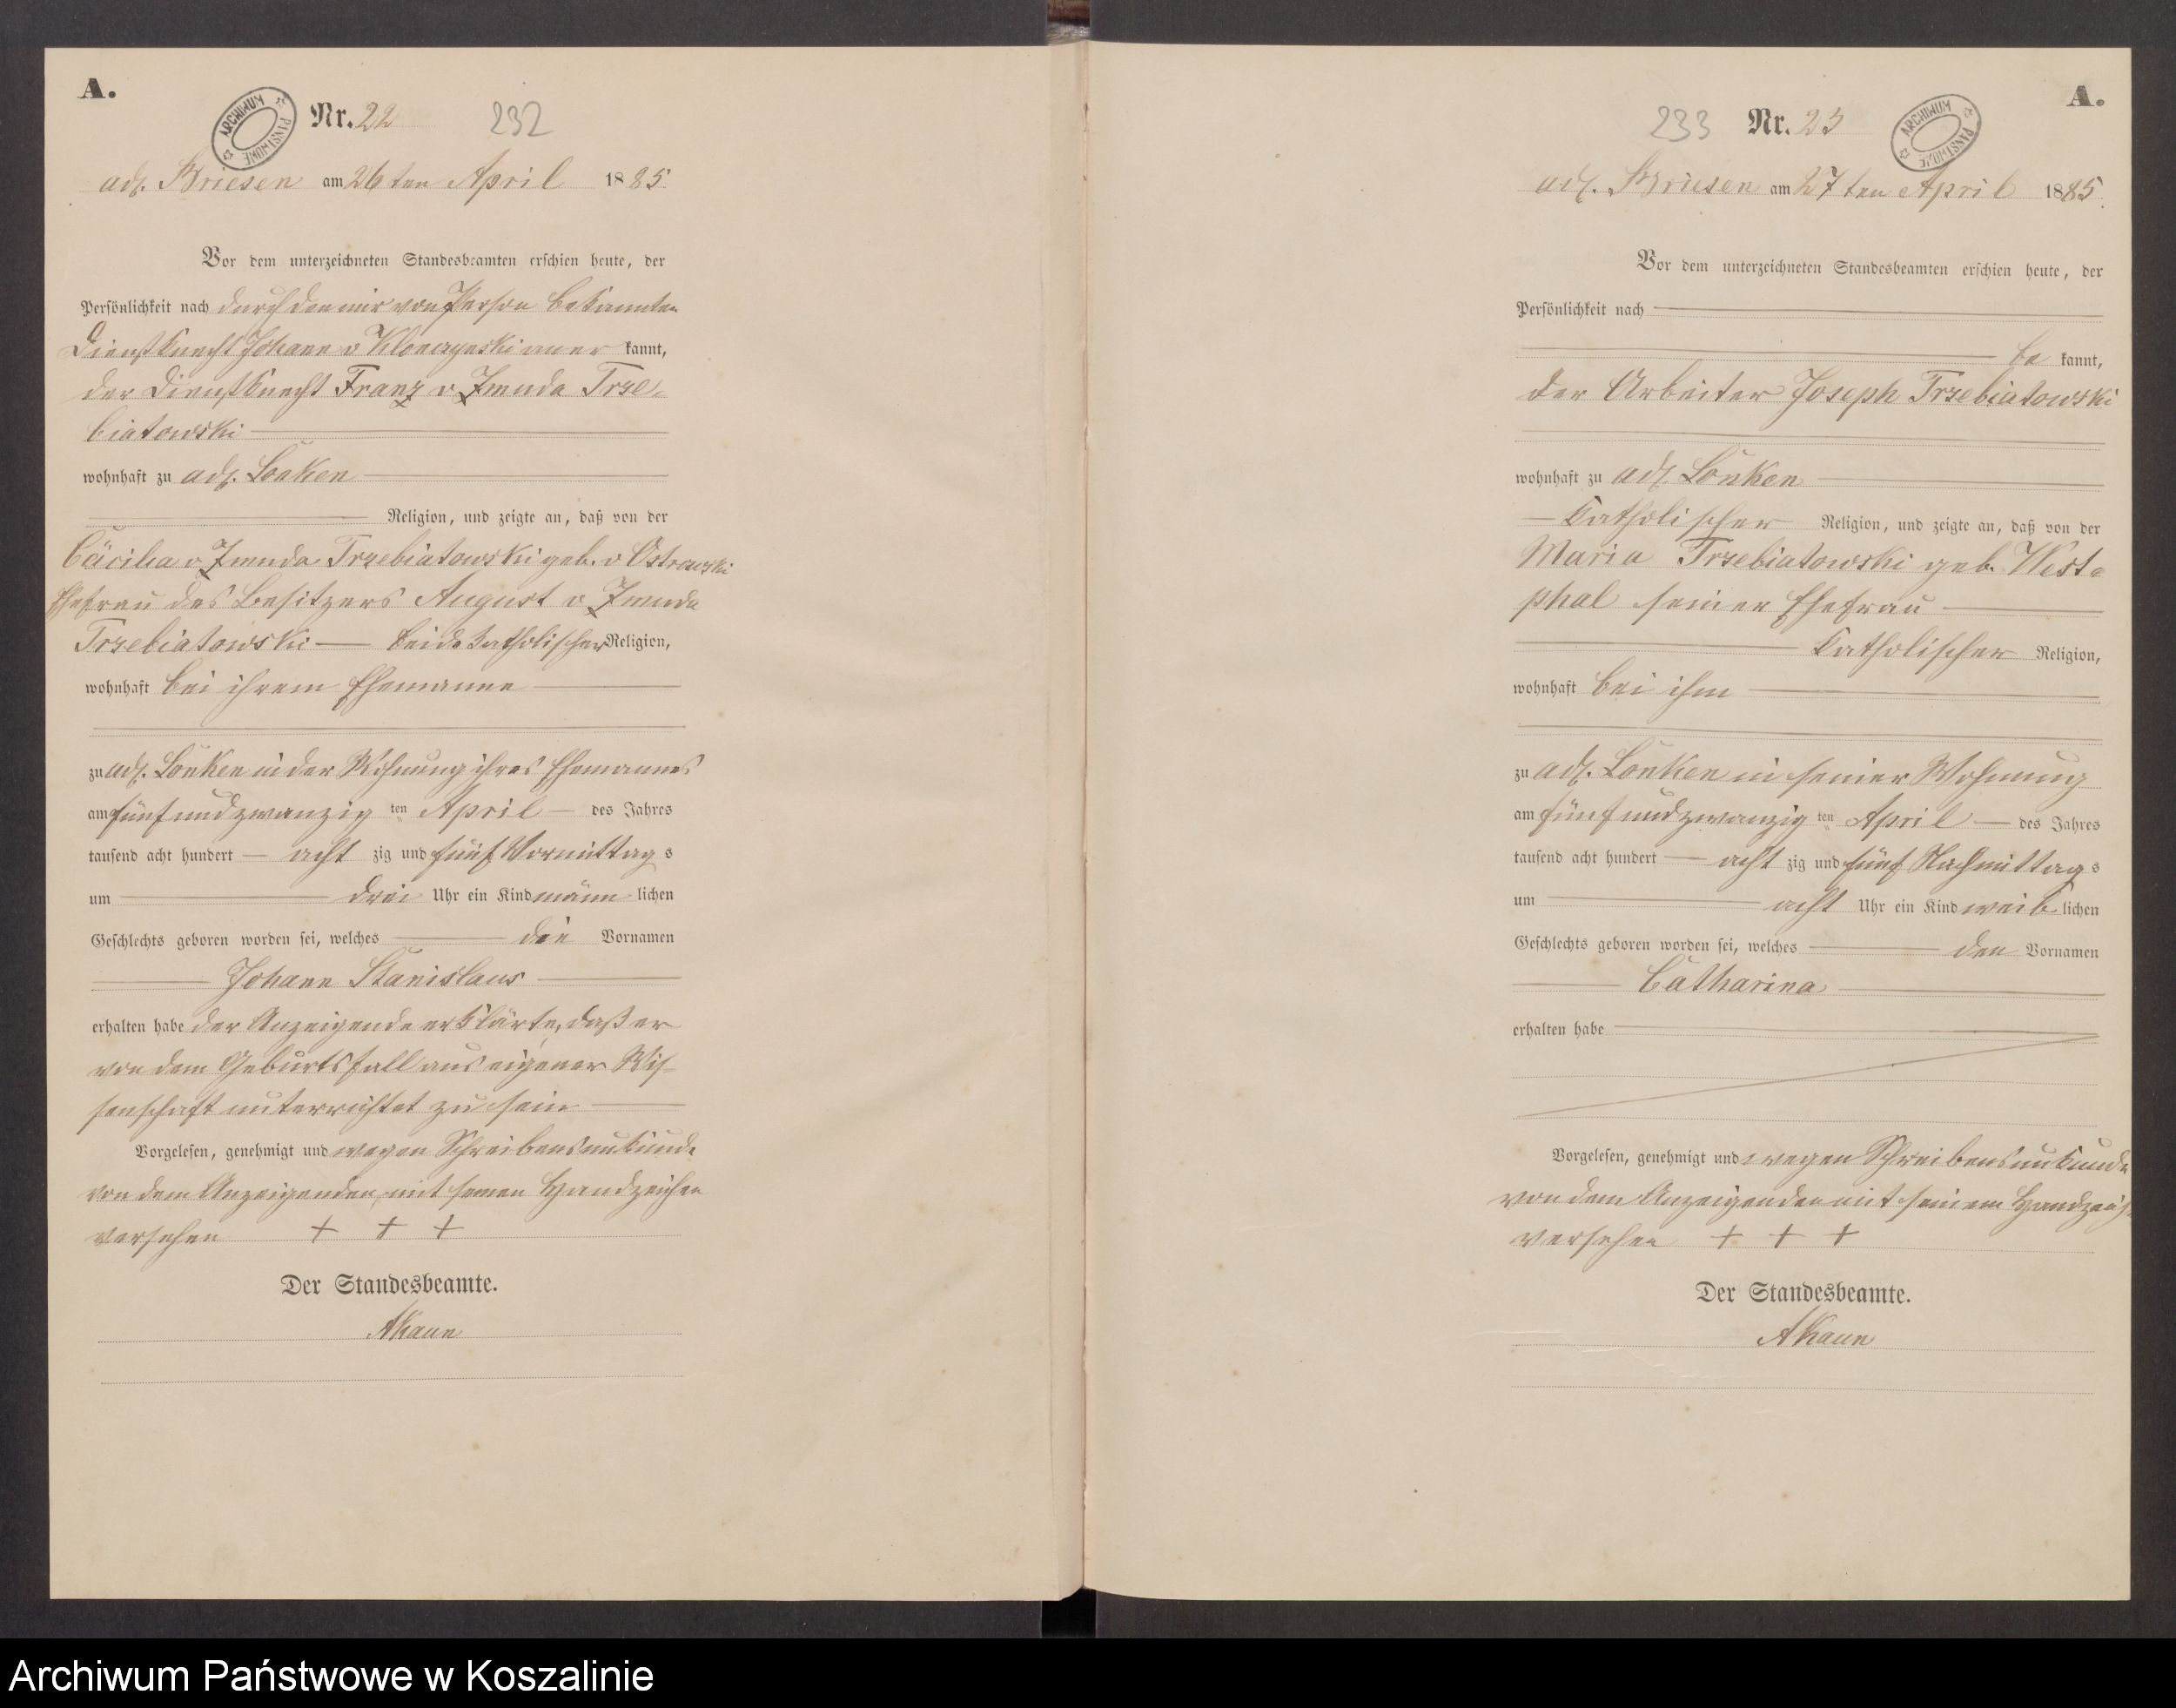 A.
ARCHIWUM PAŃSTWOWE
Nr. 22 232
adl. Briesen am 26ten April 1885
Vor dem unterzeichneten Standesbeamten erschien heute, der
Persönlichkeit nach durch den mir von Person bekannten
Dienstknecht Johann v Klonczynski aner kannt,
der Dienstknecht Franz v Zmuda Trze-
biatowski
wohnhaft zu adl. Lonken
Religion, und zeigte an, daß von der
Cäcilia v Zmuda Trzebiatowski geb. v Ostrowski
Ehefrau des Besitzers August v Zmuda
Trzebiatowski beide katholischer Religion,
wohnhaft bei ihrem Ehemanne
zu adl. Lonken in der Wohnung ihres Ehemannes
am fünfundzwanzig ten April des Jahres
tausend acht hundert acht zig und fünf Vormittag s
um drei Uhr ein Kind männ lichen
Geschlechts geboren worden sei, welches die Vornamen
Johann Stanislaus
erhalten habe der Anzeigende erklärte, daß er
von dem Geburtsfall aus eigener Wis-
senschaft unterrichtet zu sein
Vorgelesen, genehmigt und wegen Schreibensunkunde
von dem Anzeigenden mit seinen Handzeichen
versehen + + +
Der Standesbeamte.
AKaun
A.
233 Nr. 23
ARCHIWUM PAŃSTWOWE
adl. Briesen am 27ten April 1885.
Vor dem unterzeichneten Standesbeamten erschien heute, der
Persönlichkeit nach
be kannt,
der Arbeiter Joseph Trzebiatowski
wohnhaft zu adl. Lonken
katholischer Religion, und zeigte an, daß von der
Maria Trzebiatowski geb. West=
phal seiner Ehefrau
katholischer Religion,
wohnhaft bei ihm
zu adl. Lonken in seiner Wohnung
am fünfundzwanzig ten April des Jahres
tausend acht hundert acht zig und fünf Nachmittag s
um acht Uhr ein Kind weib lichen
Geschlechts geboren worden sei, welches den Vornamen
Catharina
erhalten habe
Vorgelesen, genehmigt und wegen Schreibensunkunde
von dem Anzeigenden mit seinem Handzeich
versehen + + +
Der Standesbeamte.
AKaun
Archiwum Państwowe w Koszalinie